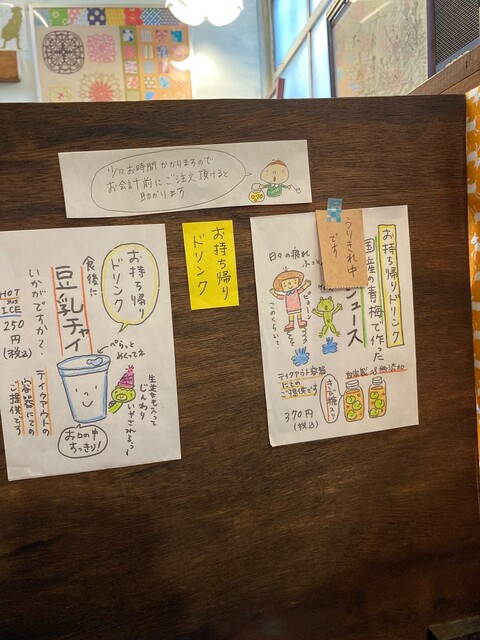 少々お時間かかりますので
お会計前にご注文頂けると
助かります
お持ち帰り
ドリンク
お持ち帰り
ドリンク
食後に
豆乳チャイ
いかがですか?
HOT
ICE
250
円
(税込)
ぺろっと
めくってネ
生姜も入って
じんわり
いやされる〜
お口の中
すっきり!
テイクアウトの
容器にての
ご提供です
うりきれ中
です
お持ち帰りドリンク
国産の青梅で作った
ュース
日々の疲れ
このくらい
テイクアウト容器
にての
ご提供です
自家製 無添加
370円
(税込)